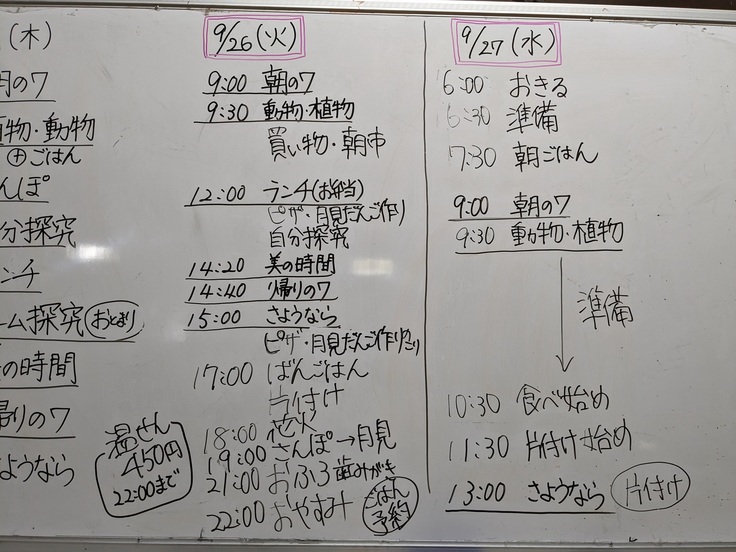 (木)
朝の7
植物・動物
⊕ごはん
んぽ
分探究
ンチ
ーム探究 おとまり
の時間
帰りの7
ようなら
温せん
450円
22:00まで
9/26(火)
9:00 朝の7
9:30 動物・植物
買い物・朝市
12:00 ランチ(お弁当)
ピザ・月見だんご作り
自分探究
14:20 美の時間
14:40 帰りの7
15:00 さようなら
ピザ・月見だんご作り
17:00 ばんごはん
片付け
18:00 花火
19:00 さんぽ→月見
21:00 おふろ 歯みがき
22:00 おやすみ
ごはん
予約
9/27(水)
6:00 おきる
6:30 準備
7:30 朝ごはん
9:00 朝の7
9:30 動物・植物
準備
10:30 食べ始め
11:30 片付け始め
13:00 さようなら 片付け